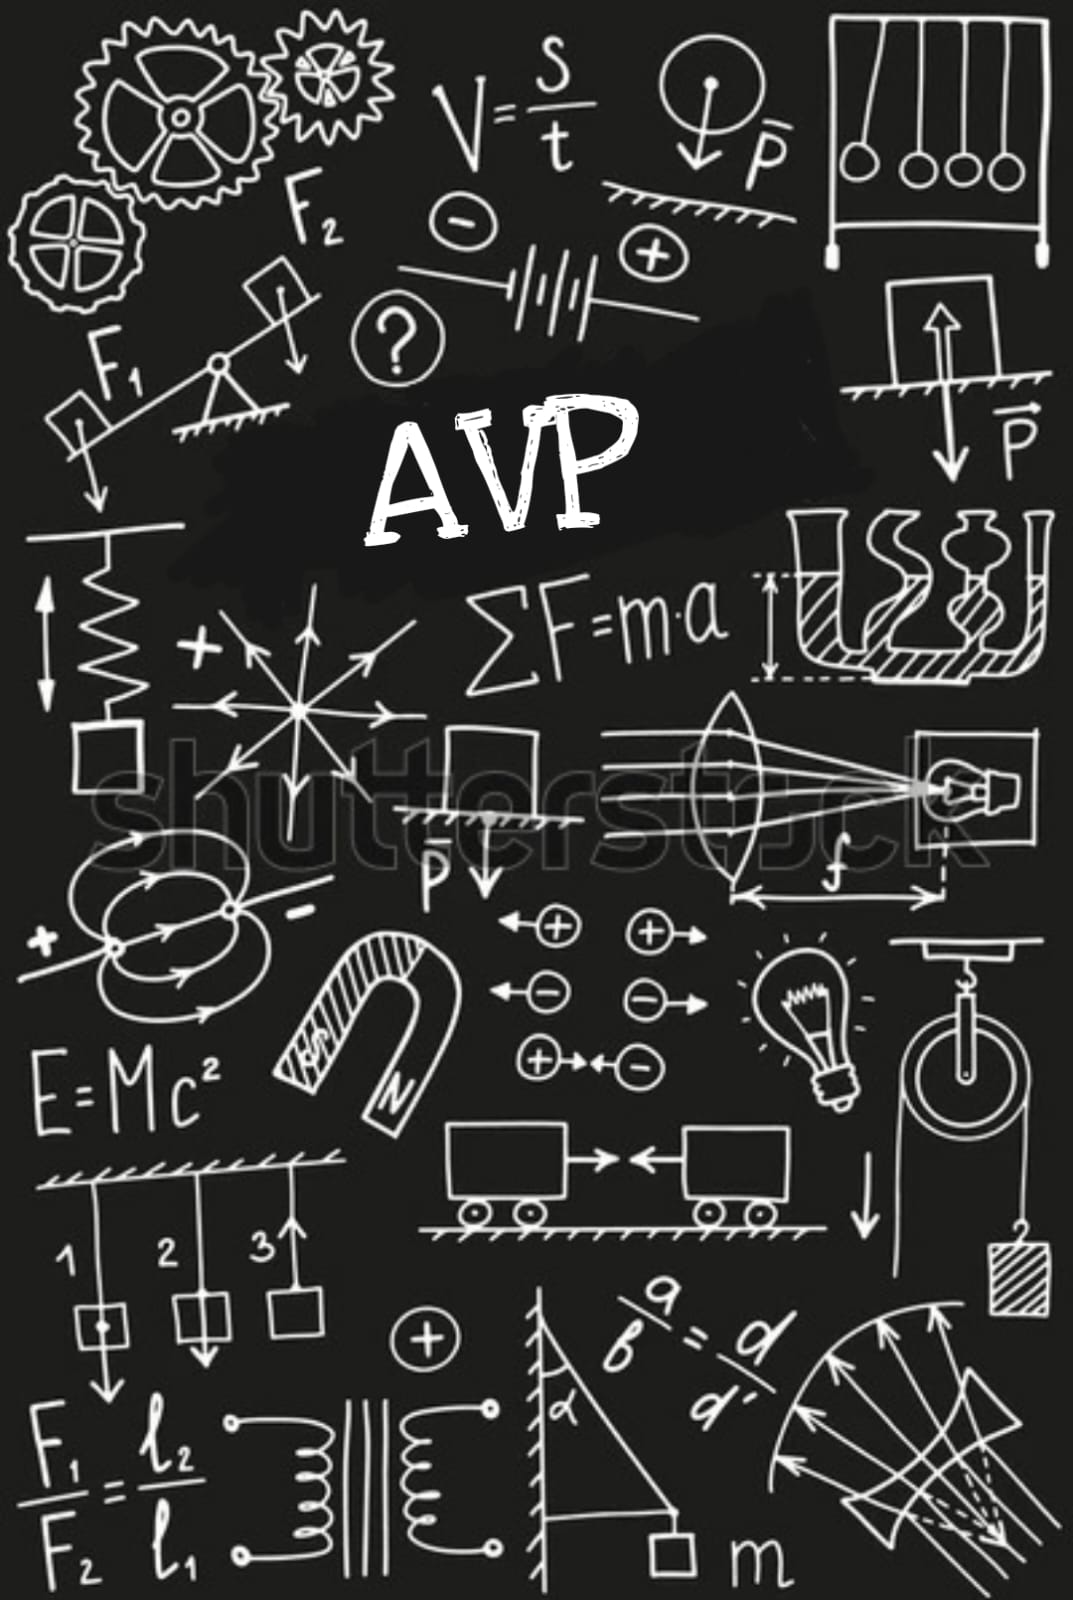 V = S / t
P̅
F₂
−
+
F₁
?
AVP
P⃗
ΣF=m·a
+
shutterstock
P̅
f
+
−
+ +
− −
+ −
S
N
E=Mc²
1 2 3
+
a / b = d / d'
α
F₁ / F₂ = l₂ / l₁
m